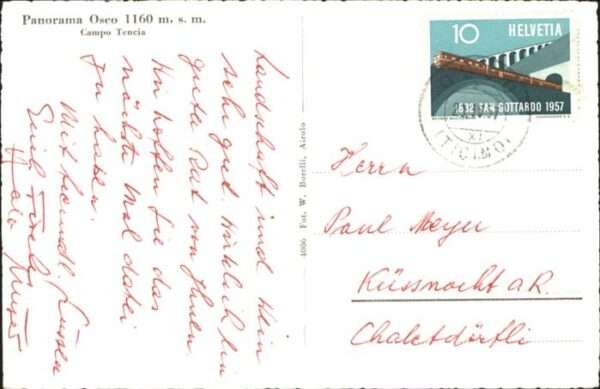 Panorama Osco 1160 m. s. m.
Campo Tencia
Landschaft und Klein
sehr gut. Wirklich ein
guter Rat von Ihnen.
Wir hoffen Sie das
nächste Mal dabei
zu haben.
Mit freundl. Grüssen
4060 Fot. W. Borelli, Airolo
10 HELVETIA
1882 SAN GOTTARDO 1957
(TICINO)
Herrn
Paul Meyer
Küssnacht a R.
Chaletdörfli